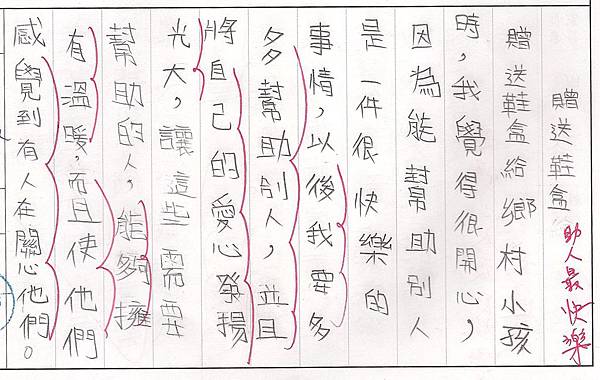 贈送鞋盒
助人最快樂
贈送鞋盒給鄉村小孩
時，我覺得很開心，
因為能幫助別人
是一件很快樂的
事情，以後我要多
多幫助別人，並且
將自己的愛心發揚
光大，讓這些需要
幫助的人，能夠擁
有溫暖，而且使他們
感覺到有人在關心他們。